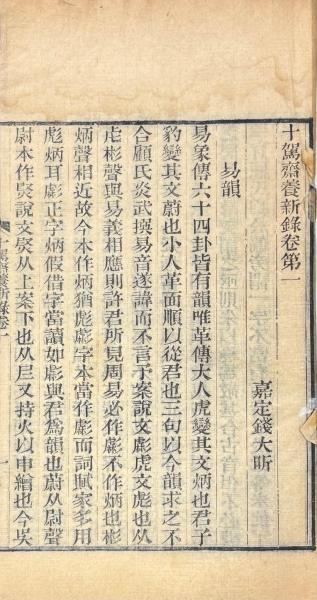 十駕齋養新錄卷第一
嘉定錢大昕
易韻
易象傳六十四卦皆有韻唯革傳大人虎變其文炳也君子
豹變其文蔚也小人革面順以從君也三句以今韻求之不
合顧氏炎武撰易音遂諱而不言予案說文彪虎文彪也从
虎彬聲與易義相應則許君所見周易必作彪不作炳也彬
炳聲相近故今本作炳猶彪彪字本當作彪而詞賦家多用
彪炳耳彪正字炳假借字當讀如彪與君爲韻也蔚从尉聲
尉本作㷉說文㷉从上案下也从𡰥又持火以申繒也今吳
十駕齋養新錄卷一
一